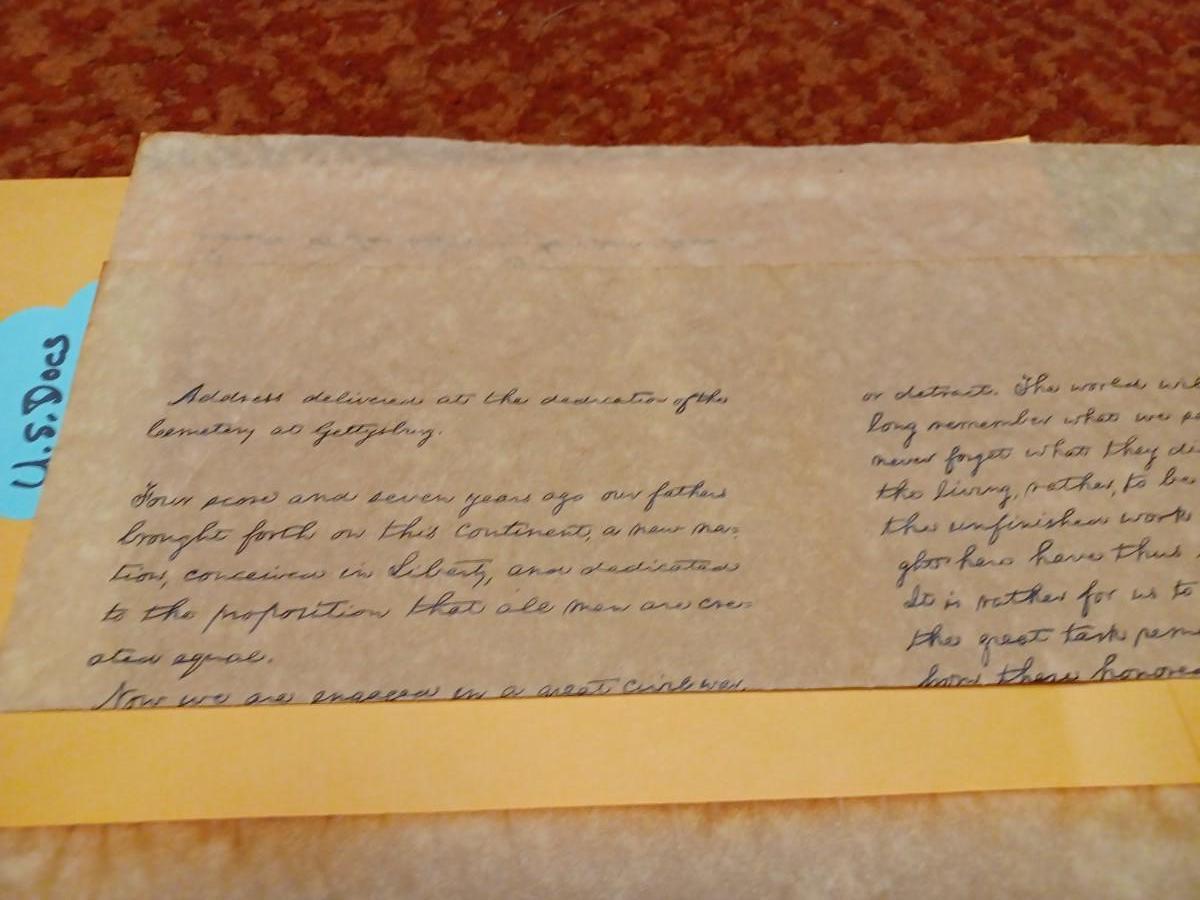 U.S. Docs
Address delivered at the dedication of the
Cemetery at Gettysburg.
Four score and seven years ago our fathers
brought forth on this continent, a new na=
tion, conceived in Liberty, and dedicated
to the proposition that all men are cre=
ated equal.
Now we are engaged in a great civil war,
or detract. The world will
long remember what we
never forget what they
the living, rather, to be
the unfinished work
ght here have thus
It is rather for us to
the great task
from these honored